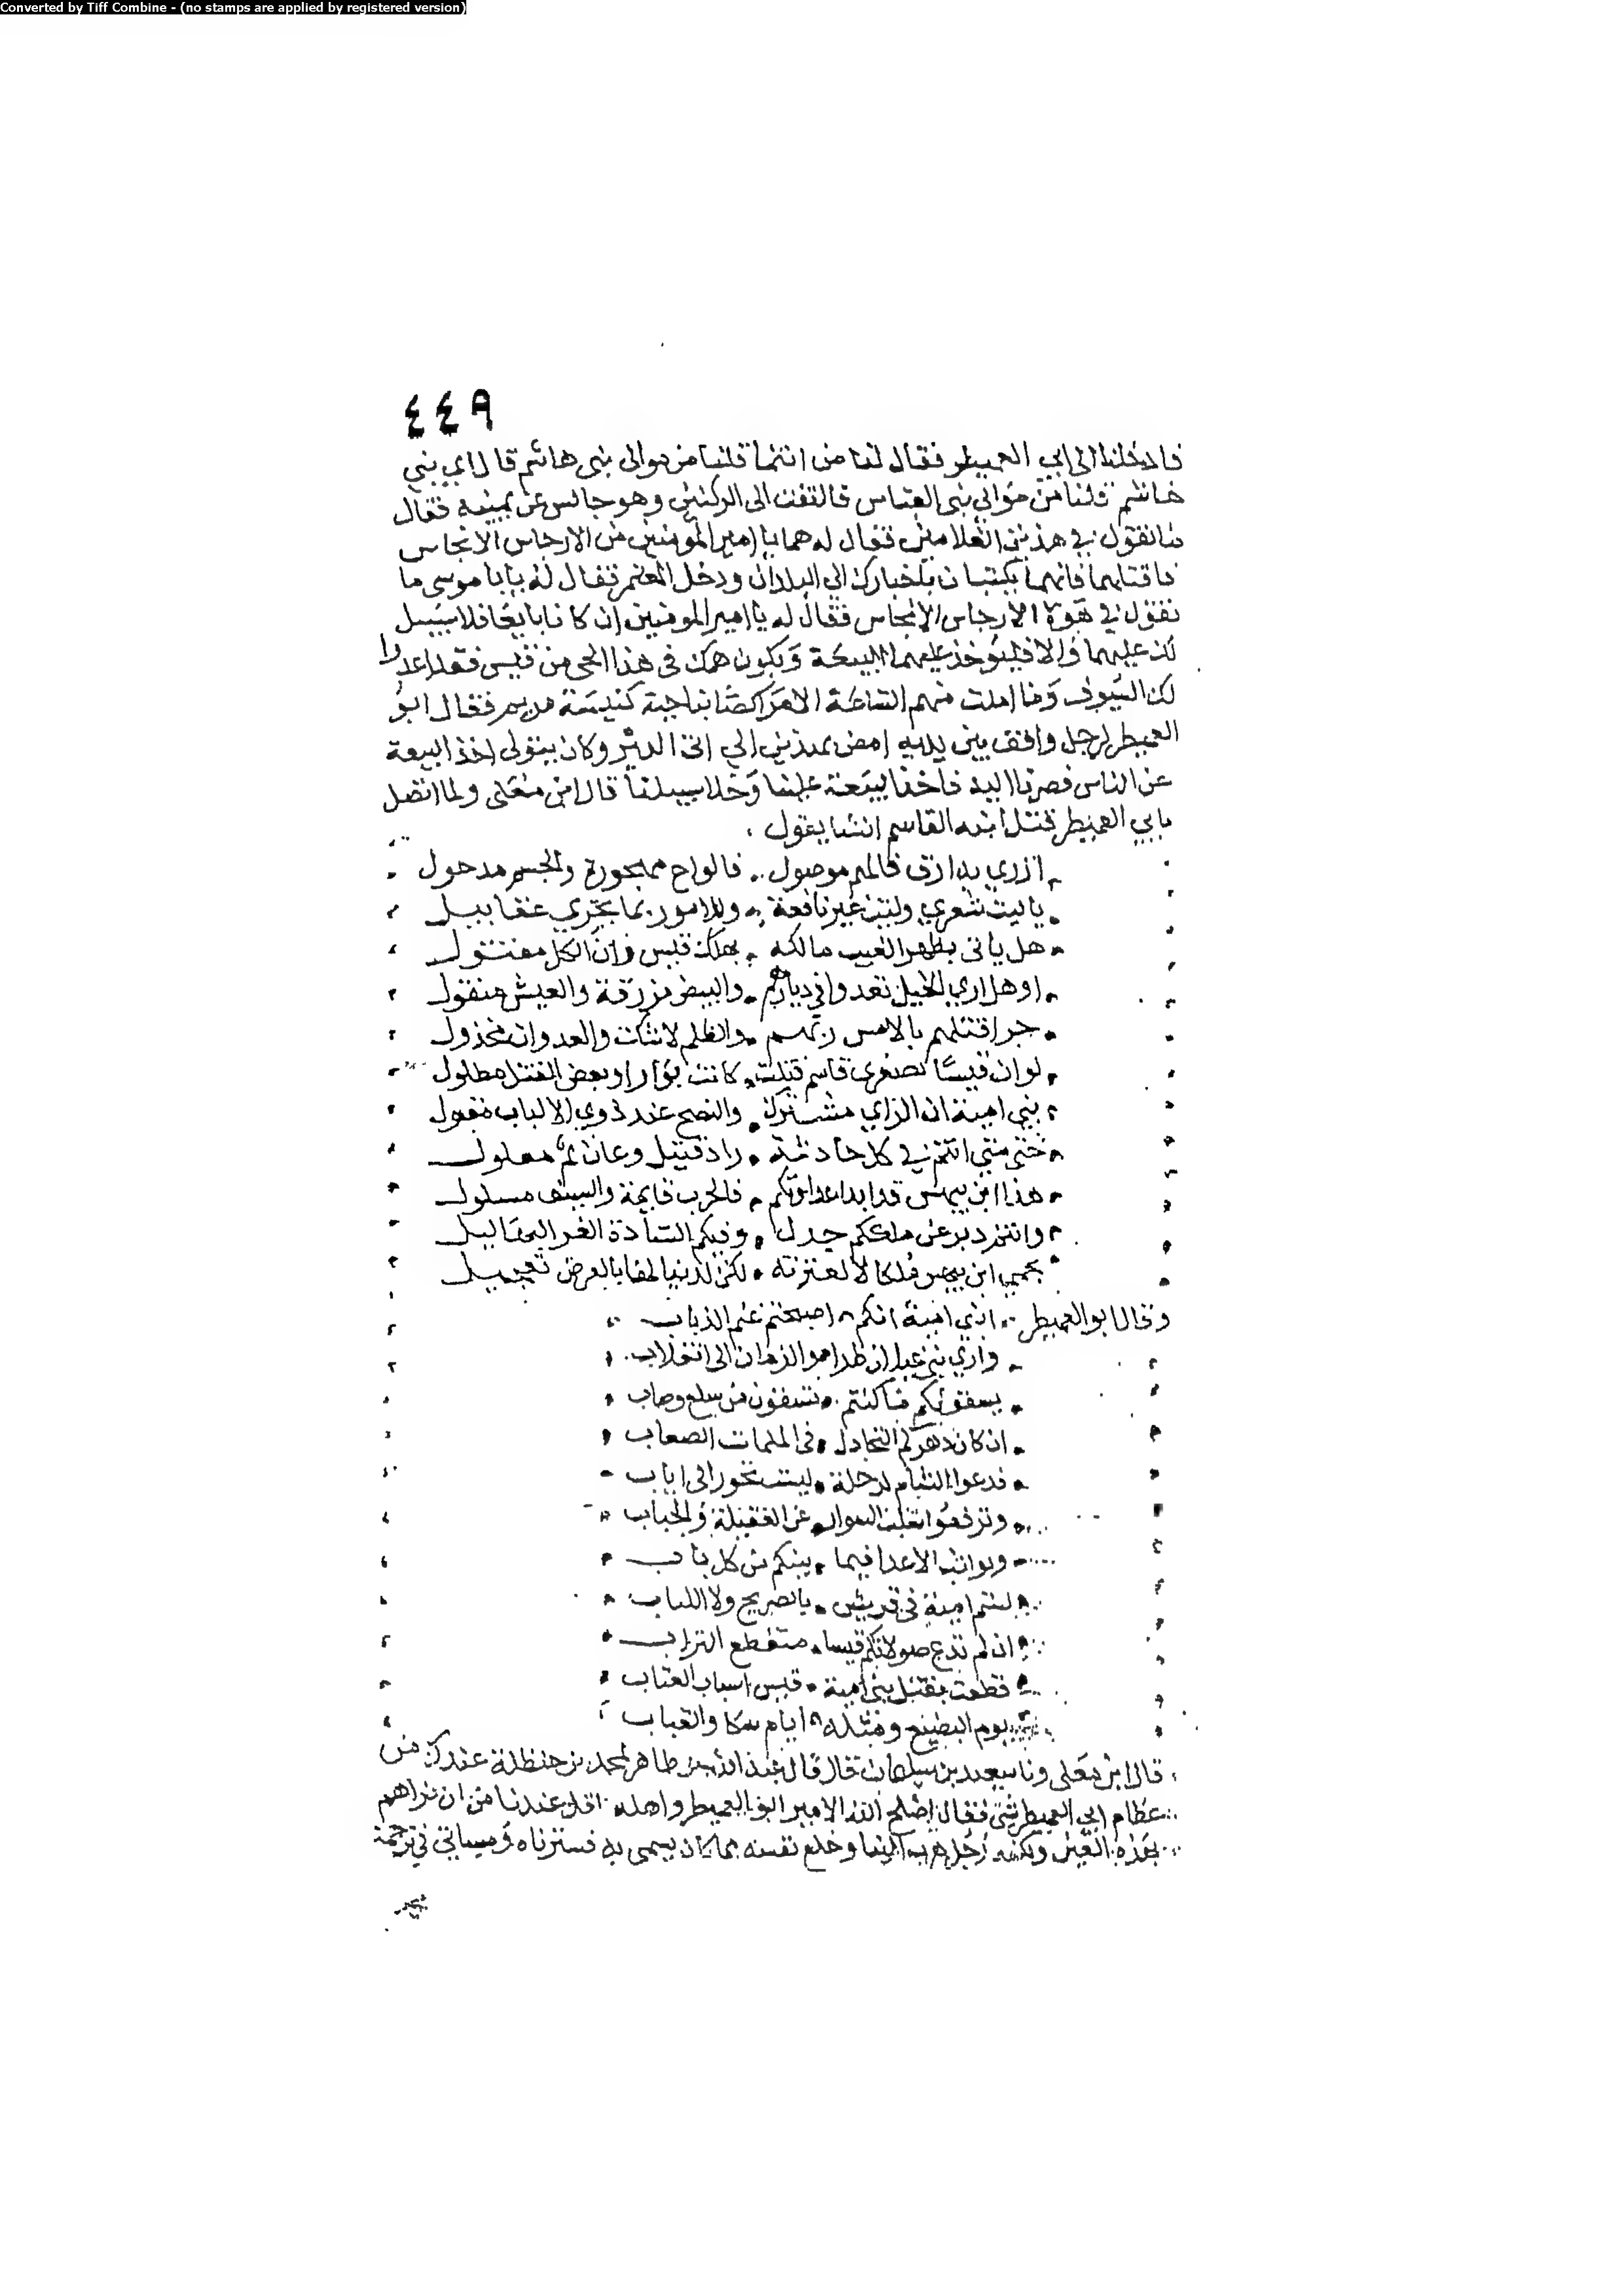 Converted by Tiff Combine - (no stamps are applied by registered version)
٤٤٩
فادخلنا الى ابي العميطر فقال لنا من انتما قلنا من موالى بنى هاشم قال اي بني
هاشم قلنا من موالي بنى العباس فالتفت الى الركينى وهو جالس عن يمينه فقال
ما تقول في هذين الغلامين فقال له هما يا امير المومنين من الارجاس الانجاس
فاقتلهما فانهما يكتبان باخبارك الى البلدان ودخل المعتمر فقال له يابا موسى ما
تقول في هولا الارجاس الانجاس فقال له يا امير المومنين ان كانا بايعا فلا سبيل
لك عليهما والا فليوخذ عليهما البيعة ويكون همك فى هذا الحى من قيس فقد اعدوا
لك السيوف وما املت منهم الساعة الا مراكضا بناحية كنيسة مريم فقال ابو
العميطر لرجل واقف بين يديه امض بهذين الي الدير وكان يتولى اخذ البيعة
عن الناس فصرنا اليه فاخذ البيعة علينا وخلا سبيلنا قال ابن معلى ولما اتصل
بابي العميطر قتل ابنه القاسم انشا يقول
ارق فالهم موصول فالواح مهجورة والجسم مدخول
يا ليت شعري وليت غير نافعة وللامور بما يجري عقابيل
هل ياتى بظهر الغيب مالكة بهلك قيس وان الكل مقتول
او هل اري الخيل تعدوا في ديارهم والبيض والعيش منقول
قتلهم بالامس ربهم والظلم لا شك والعدوان مخذول
لو ان قيسا قاسم قتلت كانت بوارا وبعض القتل مطلول
بني امية ان الراي مشترك والنصح عند ذوي الالباب مقبول
حتى متى انتم في كل حادثة قتيل وعان ثم مغلول
هذا ابن بيهس قد ابدا عداوتكم فالحرب قايمة والسيف مسلول
عن ملككم جدل وفيكم السادة الغر البهاليل
يحمى ابن بيهس ملكا لا لعترته لكن لدنيا لها بالعرض تعجيل
وقال ابو العميطر امية انكم اصبحتم غنم الذياب
واري بني عيلان الزمان الى انقلاب
بعقوبكم ما كنتم تسقون من سلع وصاب
ان كان دهركم التخاذل فى الملمات الصعاب
فدعوا الشام لرحلة ليست تحور الى اياب
وترفعوا السواد عن العقيلة والحباب
الاعدا فيما بينكم من كل باب
لستم امية فى قريش بالصريح ولا اللباب
ان لم تدع صولاتكم قيسا منقطع التراب
قطعت بقتل بني امية قيس اسباب العتاب
يوم ومثله ايام والقباب
قال ابن معلى ونا سعيد بن سليمان قال قال عبد الله بن طاهر لمحمد بن حنظلة عندك من
عظام ابي العميطر شى فقال اصلح الله الامير ابو العميطر واهله اقل عندنا من ان نراهم
بهذه العين ولكنه رجل هرب الينا وخلع نفسه مما كان يسمى به فسترناه وسياتي في ترجمة